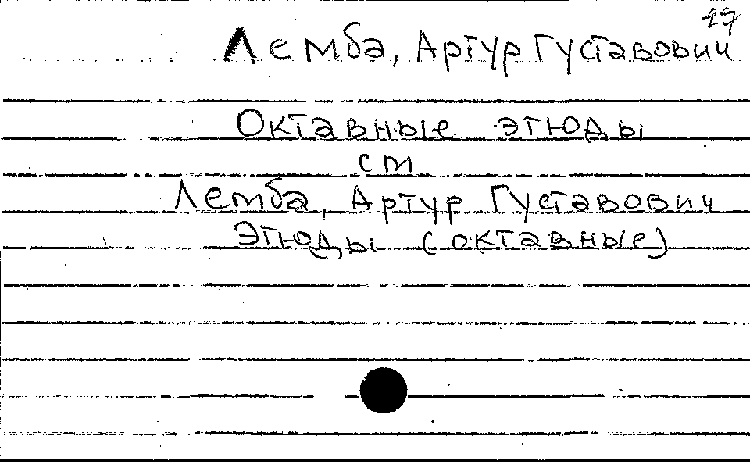 17
Лемба, Артур Густавович
Октавные этюды
см
Лемба, Артур Густавович
Этюды (октавные)